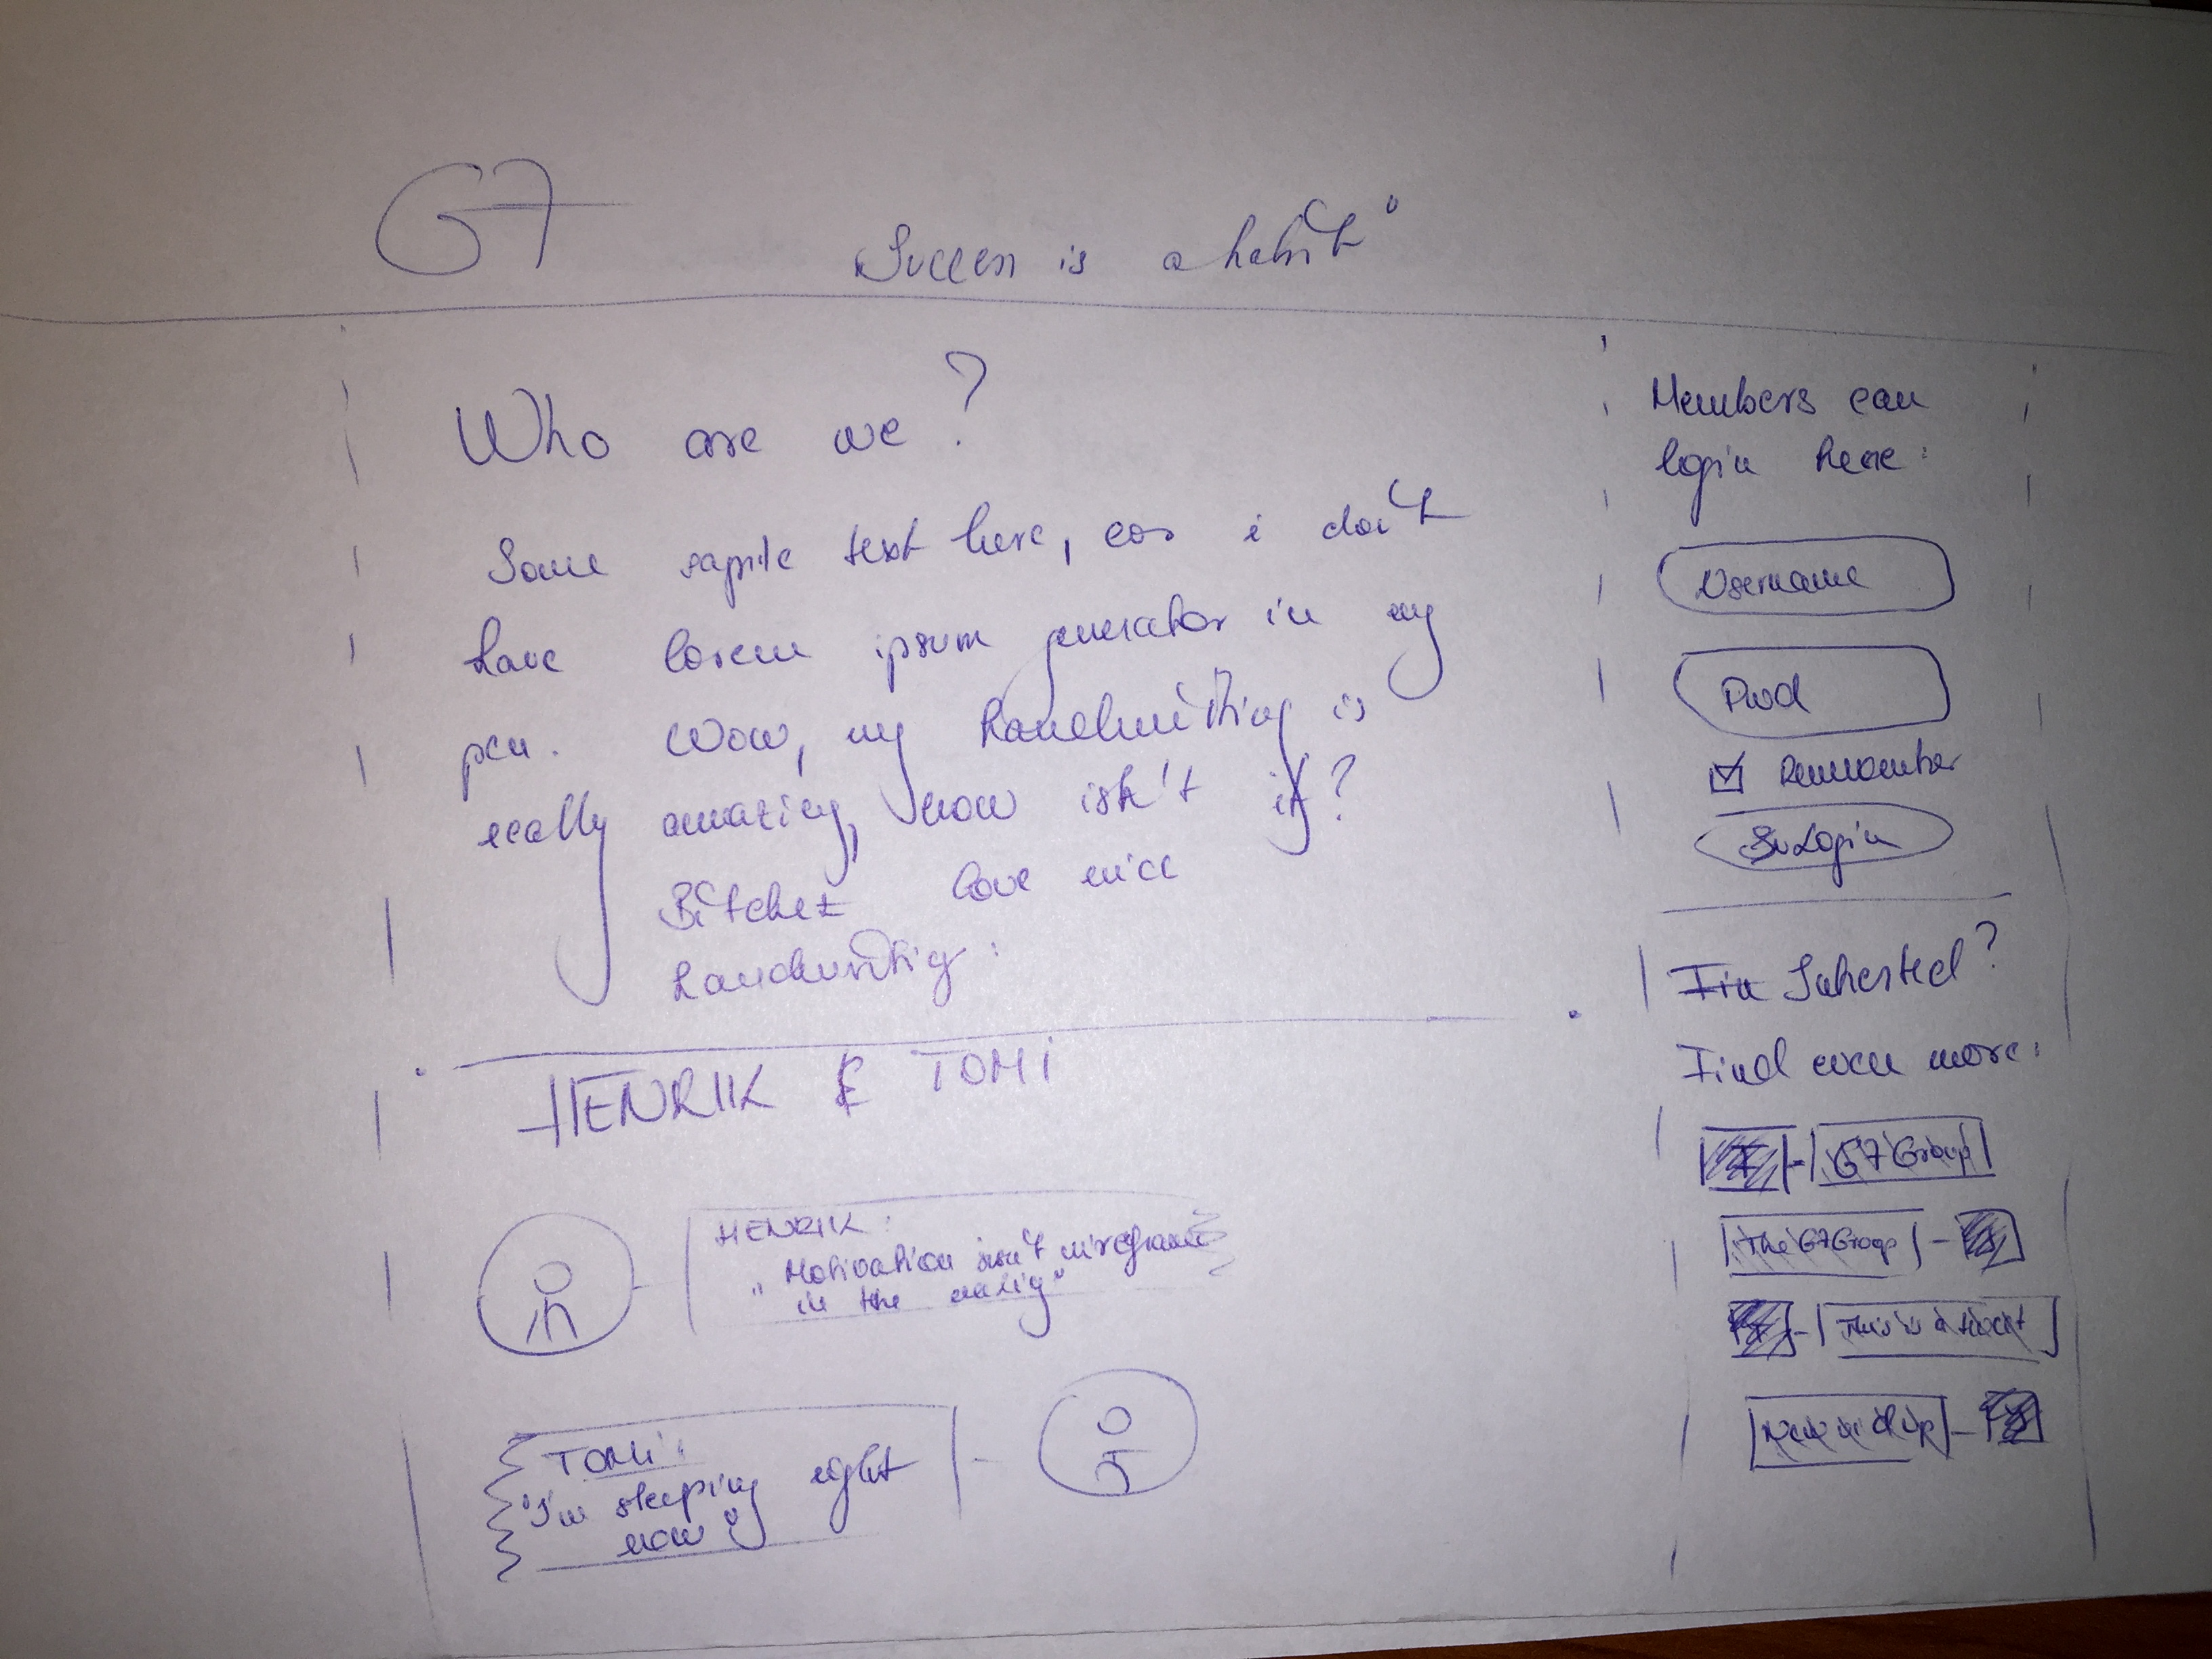 G7
„Success is a habit“
Who are we?
Some sapmle text here, cos i don't
have lorem ipsum generator in my
pen. Wow, my handwriting is
really amazing, now isn't it?
Bitchez love nice
handwritig:
HENRIK & TOMI
HENRIK:
„Motivation isn't
in the
TOMI:
"I'm sleeping right
now"
Members can
login here:
Username
Pwd
Remmember
Login
Interested?
Find even more:
G7 Group
The G7Group